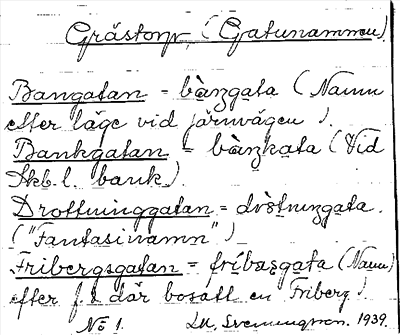 Grästorp, (Gatunamnen).
Bangatan = bàŋgata (Namn
efter läge vid järnvägen).
Bankgatan = bàŋkata (Vid
Skb. l. bank).
Drottninggatan = dròtniŋgata.
("Fantasinamn")
Fribergsgatan = fríbæsgata (Namn
efter f. d där bosatt en Friberg).
No 1. Lll, Svenningson, 1939.